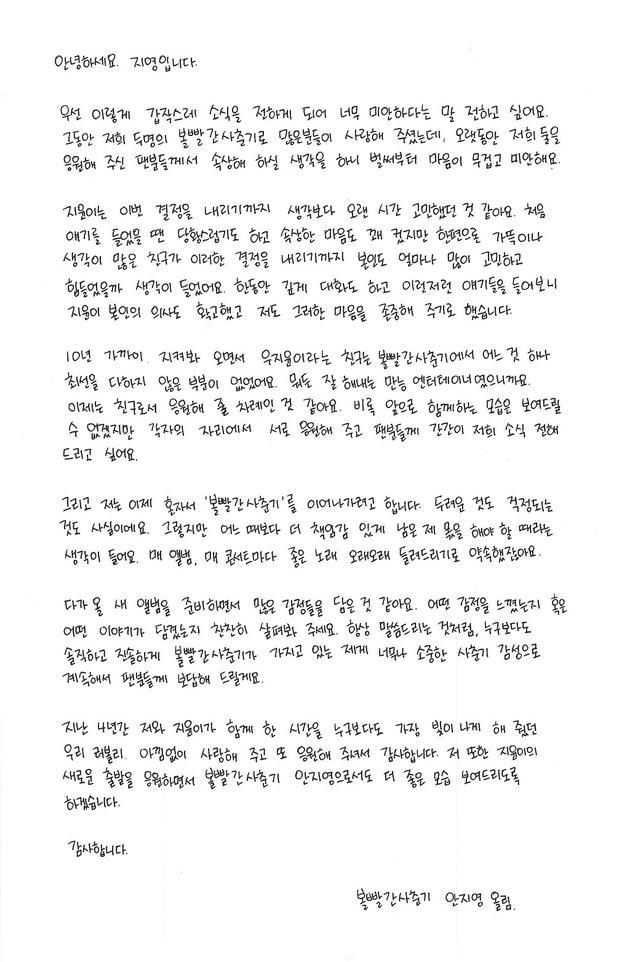 안녕하세요. 지영입니다.
우선 이렇게 갑작스레 소식을 전하게 되어 너무 미안하다는 말 전하고 싶어요.
그동안 저희 두명의 볼빨간사춘기로 많은분들이 사랑해 주셨는데, 오랫동안 저희 둘을
응원해 주신 팬분들께서 속상해 하실 생각을 하니 벌써부터 마음이 무겁고 미안해요.
지윤이는 이번 결정을 내리기까지 생각보다 오랜 시간 고민했던 것 같아요. 처음
얘기를 들었을 땐 당황스럽기도 하고 속상한 마음도 꽤 컸지만 한편으로 가뜩이나
생각이 많은 친구가 이러한 결정을 내리기까지 본인도 얼마나 많이 고민하고
힘들었을까 생각이 들었어요. 한동안 깊게 대화도 하고 이런저런 얘기들을 들어보니
지윤이 본인의 의사도 확고했고 저도 그러한 마음을 존중해 주기로 했습니다.
10년 가까이 지켜봐 오면서 우지윤이라는 친구는 볼빨간사춘기에서 어느 것 하나
최선을 다하지 않은 부분이 없었어요. 뭐든 잘 해내는 만능 엔터테이너였으니까요.
이제는 친구로서 응원해 줄 차례인 것 같아요. 비록 앞으로 함께하는 모습은 보여드릴
수 없겠지만 각자의 자리에서 서로 응원해 주고 팬분들께 간간이 저희 소식 전해
드리고 싶어요.
그리고 저는 이제 혼자서 '볼빨간사춘기'를 이어나가려고 합니다. 두려운 것도 걱정되는
것도 사실이에요. 그렇지만 어느 때보다 더 책임감 있게 남은 제 몫을 해야 할 때라는
생각이 들어요. 매 앨범, 매 콘서트마다 좋은 노래 오래오래 들려드리기로 약속했잖아요.
다가 올 새 앨범을 준비하면서 많은 감정들을 담은 것 같아요. 어떤 감정을 느꼈는지 혹은
어떤 이야기가 담겼는지 찬찬히 살펴봐 주세요. 항상 말씀드리는 것처럼, 누구보다도
솔직하고 진솔하게 볼빨간사춘기가 가지고 있는 제게 너무나 소중한 사춘기 감성으로
계속해서 팬분들께 보답해 드릴게요.
지난 4년간 저와 지윤이가 함께 한 시간을 누구보다도 가장 빛이나게 해 줬던
우리 러볼리. 아낌없이 사랑해 주고 또 응원해 주셔서 감사합니다. 저 또한 지윤이의
새로운 출발을 응원하면서 볼빨간사춘기 안지영으로서도 더 좋은 모습 보여드리도록
하겠습니다.
감사합니다.
볼빨간사춘기 안지영 올림.